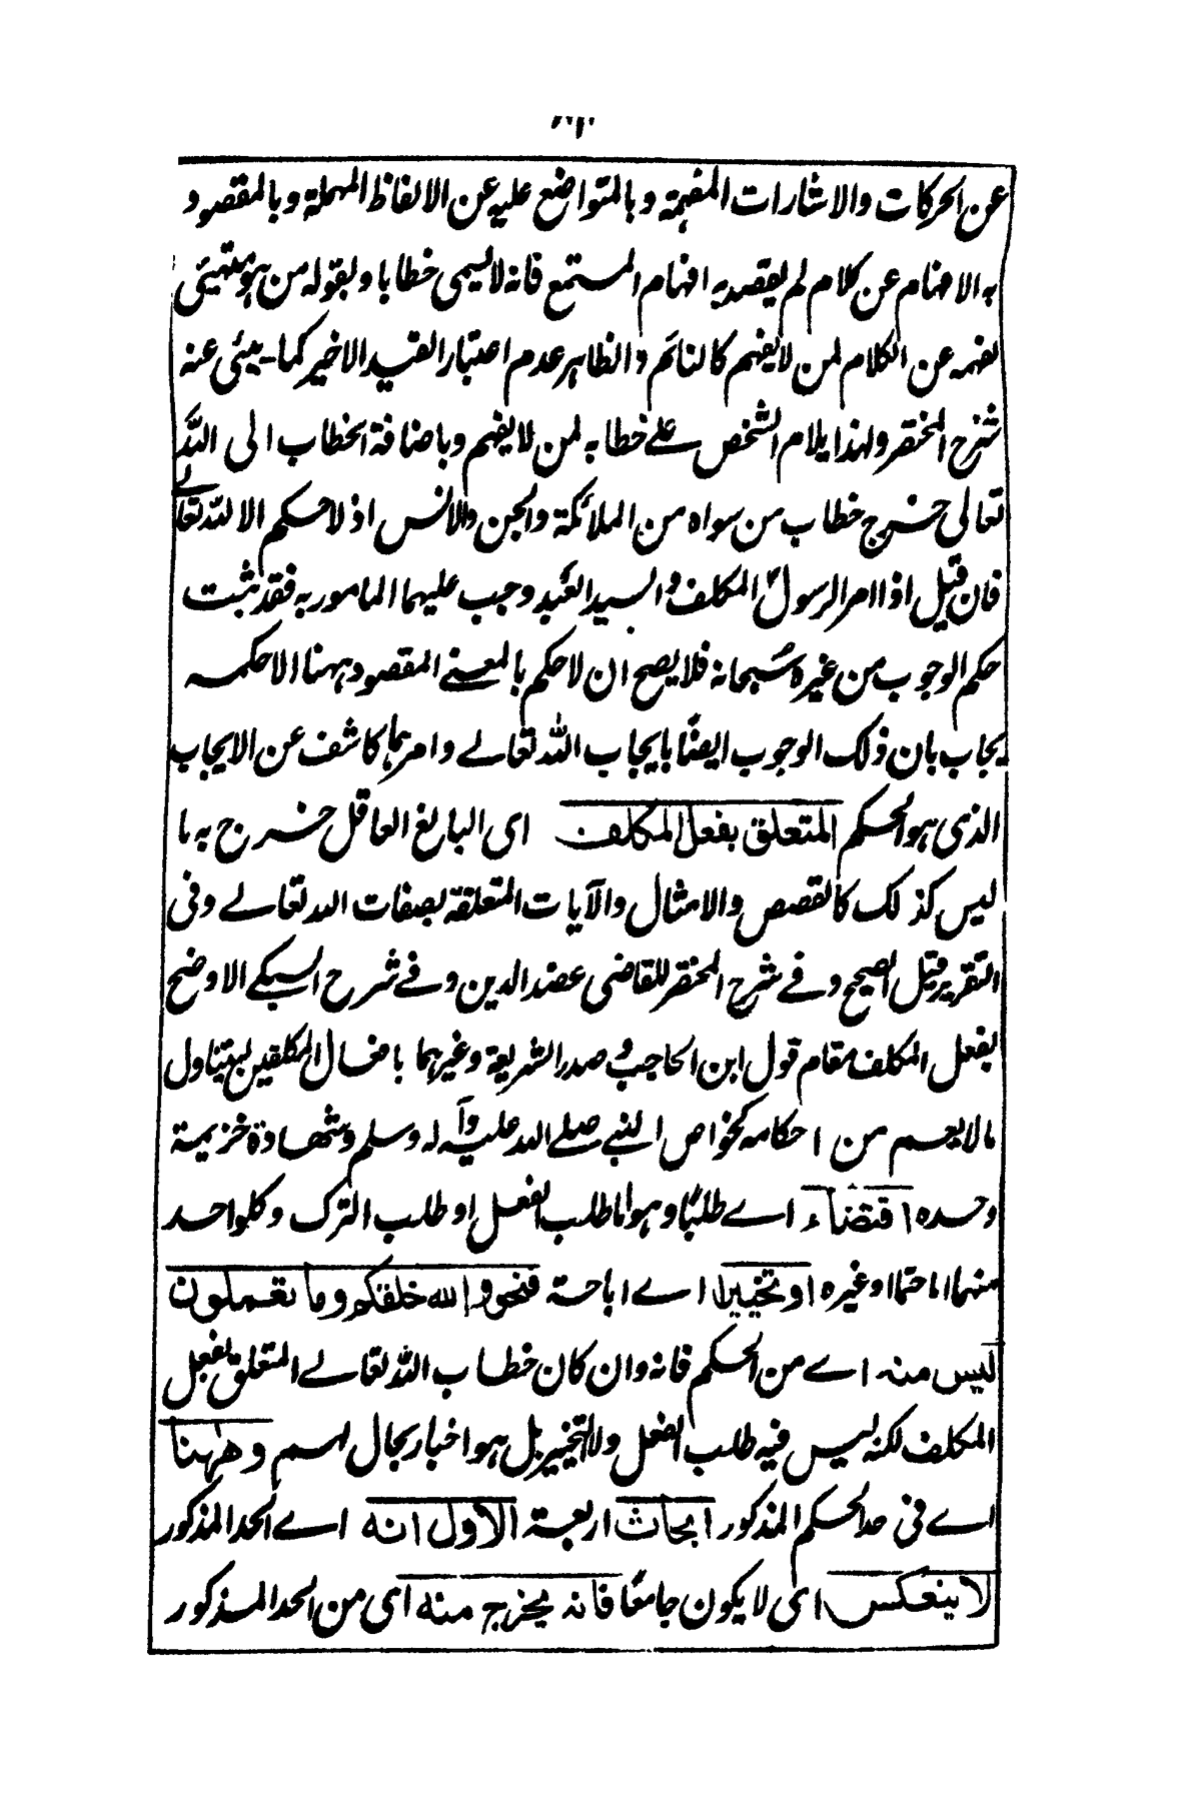 عن الحركات والاشارات المفهمة وبالمتواضع عليه عن الالفاظ المهملة وبالمقصود
به الافهام عن كلام لم يقصد به افهام المستمع فانه لا يسمى خطابا وبقوله من هو متهيئ
لفهمه عن الكلام لمن لا يفهم كالنائم والظاهر عدم اعتبار القيد الاخير كما ينبئ عنه
شرح المختصر ولهذا يلام الشخص على خطابه لمن لا يفهم وباضافة الخطاب الى الله
تعالى خرج خطاب من سواه من الملائكة والجن والانس اذ لا حكم الا لله تعالى
فان قيل اذا امر الرسول المكلف والسيد العبد وجب عليهما المامور به فقد ثبت
حكم الوجوب من غيره سبحانه فلا يصح ان لا حكم بالمعنى المقصود ههنا الا حكمه
يجاب بان ذلك الوجوب ايضًا بايجاب الله تعالے وامرهما كاشف عن الايجاب
الذى هو الحكم المتعلق بفعل المكلف اى البالغ العاقل خرج به ما
ليس كذلك كالقصص والامثال والآيات المتعلقة بصفات الله تعالے وفى
التقرير قيل الصحيح وفے شرح المختصر للقاضى عضد الدين وفے شرح السبكے الاوضح
بفعل المكلف مقام قول ابن الحاجب وصدر الشريعة وغيرهما بافعال المكلفين ليتناول
ما لا يعم من احكامه كخواص النبے صلے الله عليه وآله وسلم وشهادة خزيمة
وحده اقتضاء اے طلبًا وهو اما طلب الفعل او طلب الترك وكلواحد
منهما اما حتما او غيره او تخييرا اے اباحة فنحو والله خلقكم وما تعملون
ليس منه اے من الحكم فانه وان كان خطاب الله تعالے المتعلق بفعل
المكلف لكنه ليس فيه طلب الفعل ولا التخيير بل هو اخبار بحال لهم وههنا
اے فى حد الحكم المذكور ابحاث اربعة الاول انه اے الحد المذكور
لا ينعكس اى لا يكون جامعًا فانه يخرج منه اى من الحد المذكور